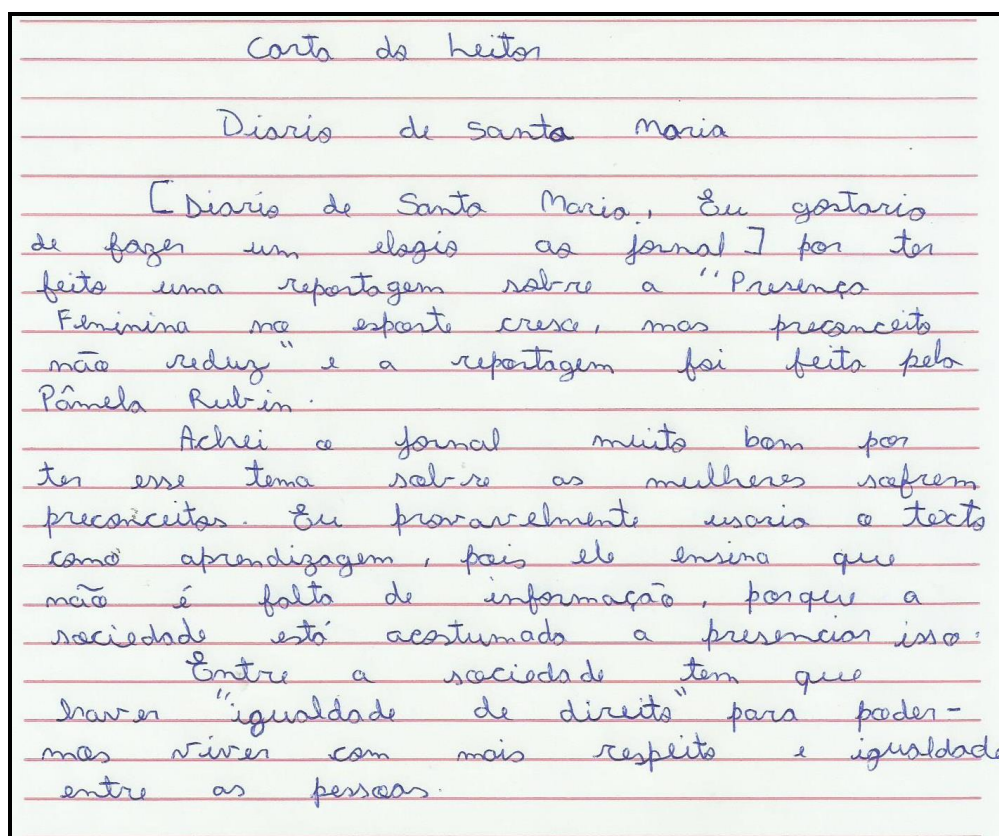 Carta do Leitor
Diario de Santa Maria
[Diario de Santa Maria, Eu gostaria
de fazer um elogio ao jornal] por ter
feito uma reportagem sobre a "Presença
Feminina no esporte cresce, mas preconceito
não reduz" e a reportagem foi feita pela
Pâmela Rubin.
Achei o jornal muito bom por
ter esse tema sobre as mulheres sofrem
preconceitos. Eu provavelmente usaria o texto
como aprendizagem, pois ele ensina que
não é falta de informação, porque a
sociedade está acostumada a presenciar isso.
Entre a sociedade tem que
haver "igualdade de direito" para poder-
mos viver com mais respeito e igualdade
entre as pessoas.